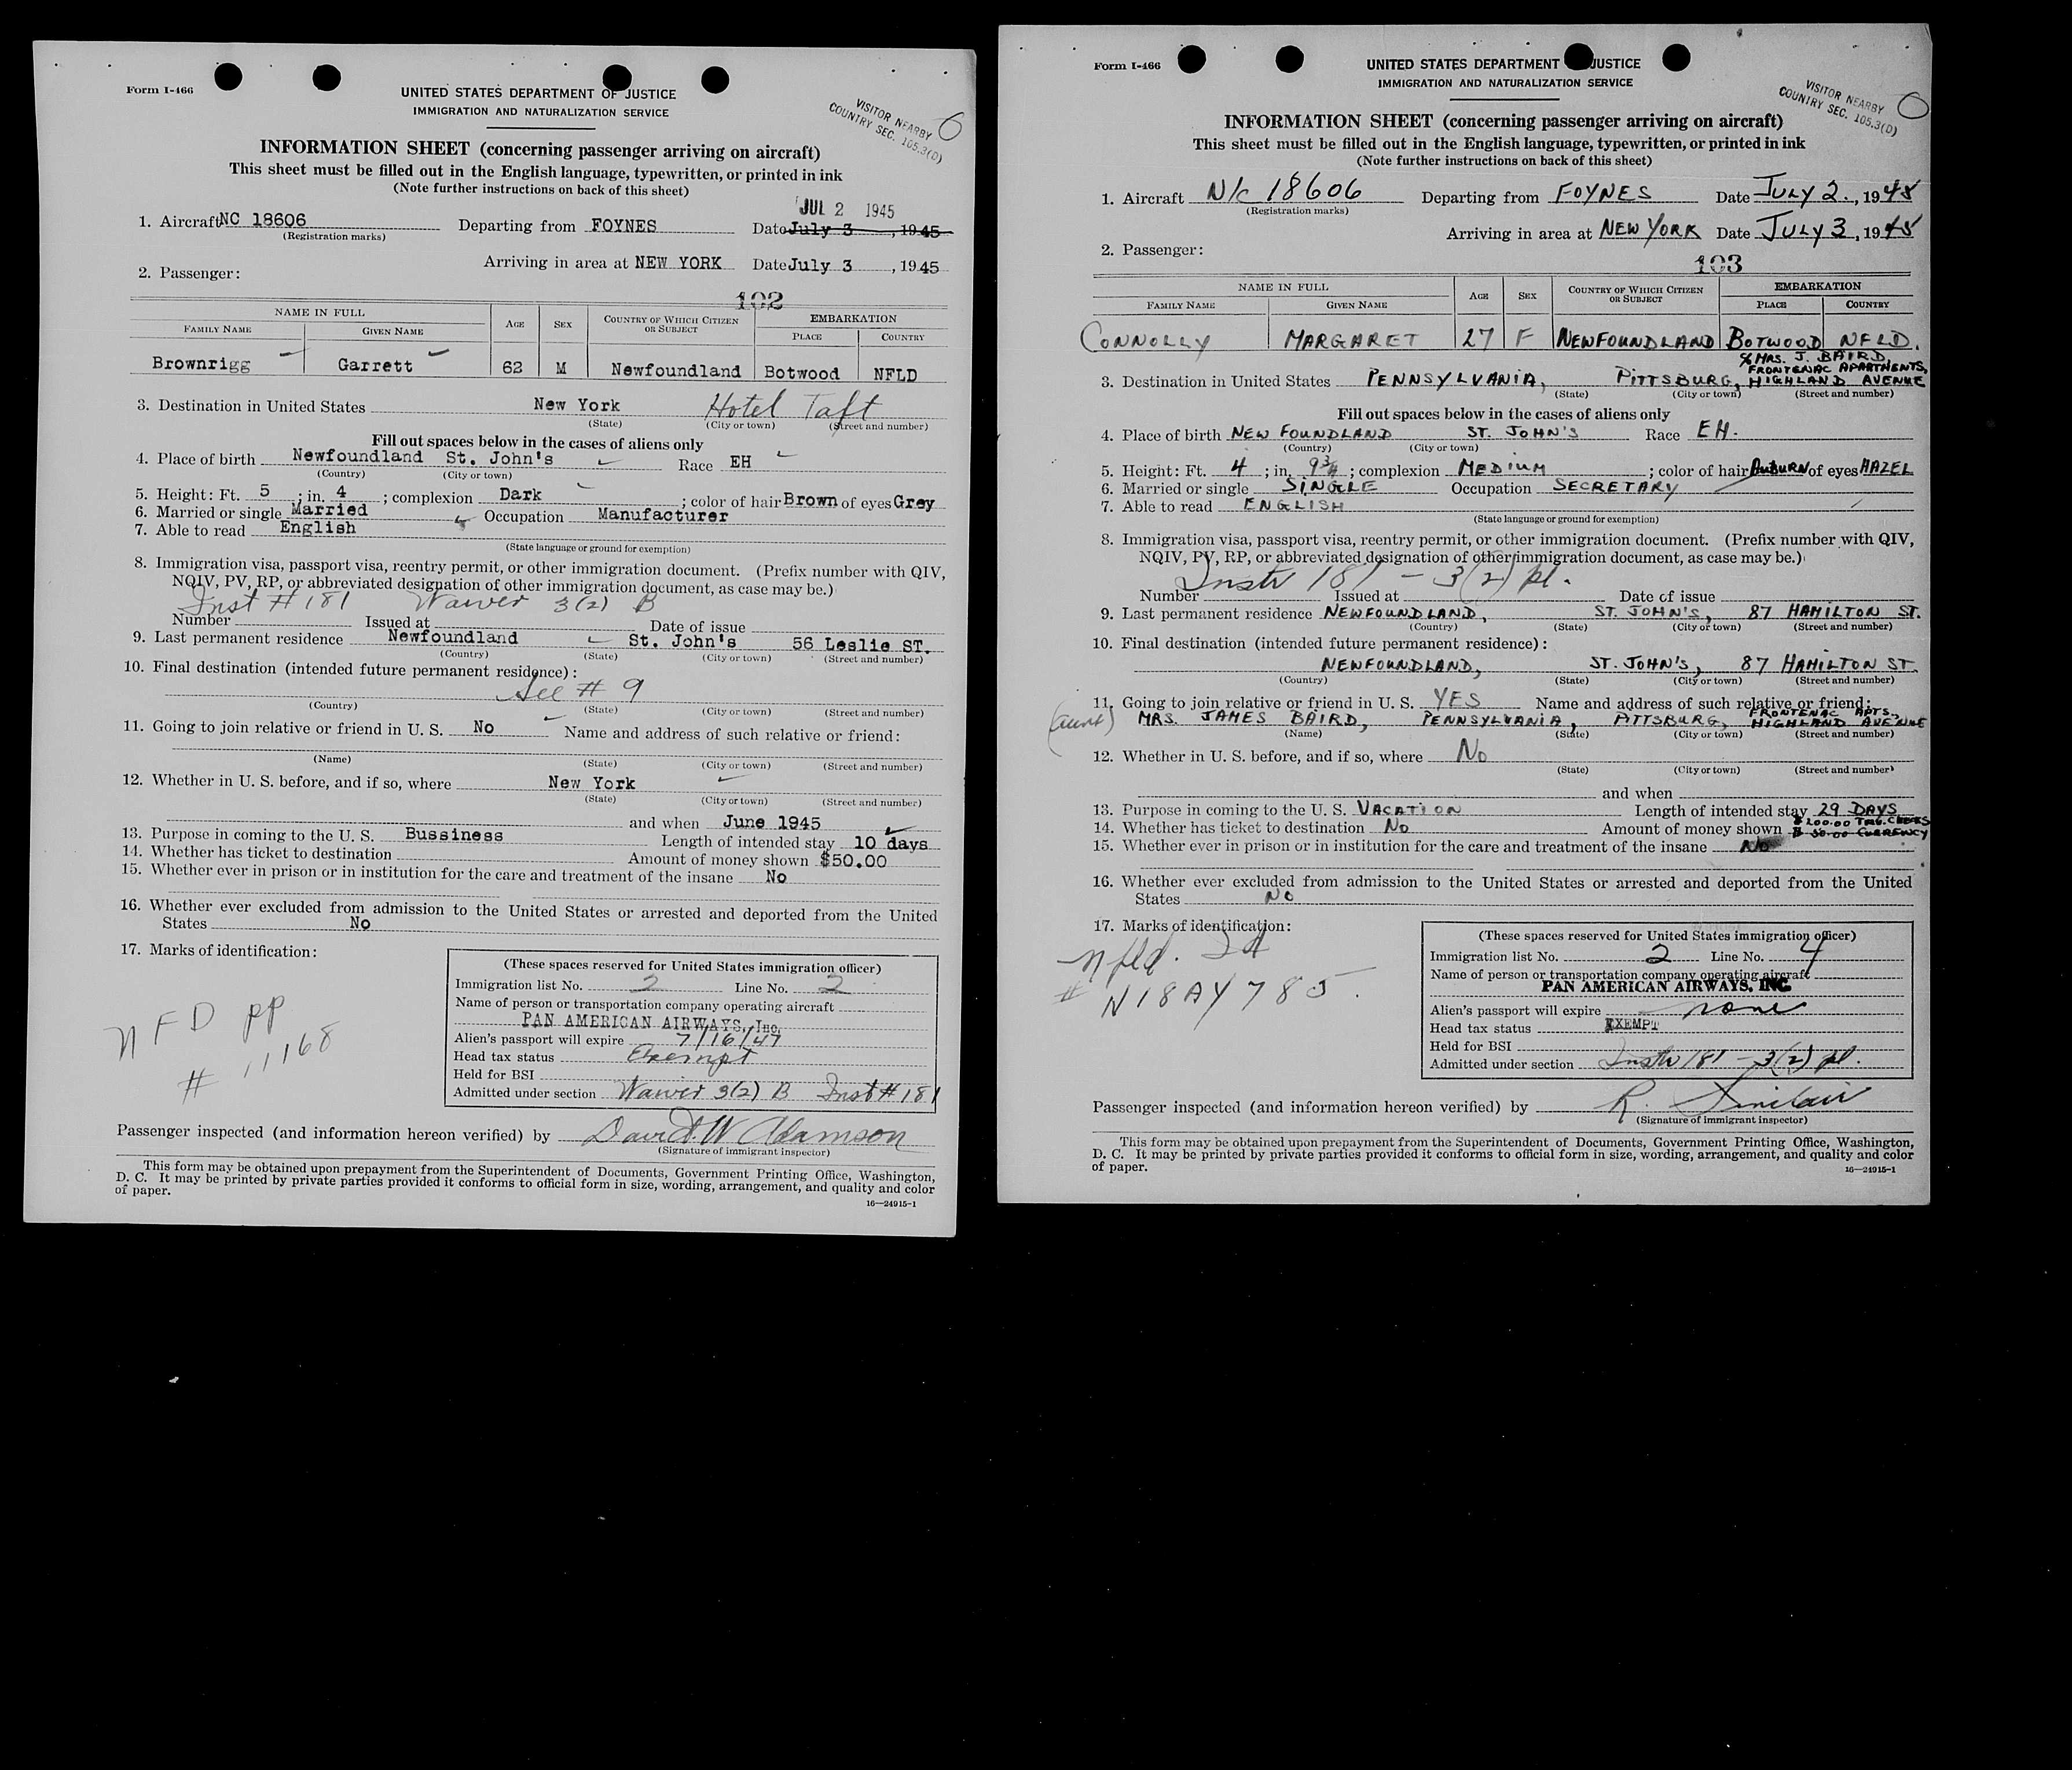 Form I-466
UNITED STATES DEPARTMENT OF JUSTICE
IMMIGRATION AND NATURALIZATION SERVICE
VISITOR NEARBY
COUNTRY SEC. 105.3(D)
INFORMATION SHEET (concerning passenger arriving on aircraft)
This sheet must be filled out in the English language, typewritten, or printed in ink
(Note further instructions on back of this sheet)
JUL 2 1945
1. Aircraft NC 18606 Departing from FOYNES Date July 3, 1945
(Registration marks)
Arriving in area at NEW YORK Date July 3, 1945
2. Passenger:
102
NAME IN FULL AGE SEX COUNTRY OF WHICH CITIZEN OR SUBJECT EMBARKATION
FAMILY NAME GIVEN NAME PLACE COUNTRY
Brownrigg Garrett 62 M Newfoundland Botwood NFLD
3. Destination in United States New York Hotel Taft
(State) (City or town) (Street and number)
Fill out spaces below in the cases of aliens only
4. Place of birth Newfoundland St. John's Race EH
(Country) (City or town)
5. Height: Ft. 5 ; in. 4 ; complexion Dark ; color of hair Brown of eyes Grey
6. Married or single Married Occupation Manufacturer
7. Able to read English
(State language or ground for exemption)
8. Immigration visa, passport visa, reentry permit, or other immigration document. (Prefix number with QIV,
NQIV, PV, RP, or abbreviated designation of other immigration document, as case may be.)
Inst # 181 Waiver 3(2) B
Number Issued at Date of issue
9. Last permanent residence Newfoundland St. John's 56 Leslie ST.
(Country) (State) (City or town) (Street and number)
10. Final destination (intended future permanent residence):
See # 9
(Country) (State) (City or town) (Street and number)
11. Going to join relative or friend in U. S. No Name and address of such relative or friend:
(Name) (State) (City or town) (Street and number)
12. Whether in U. S. before, and if so, where New York
(State) (City or town) (Street and number)
and when June 1945
13. Purpose in coming to the U. S. Bussiness Length of intended stay 10 days
14. Whether has ticket to destination Amount of money shown $50.00
15. Whether ever in prison or in institution for the care and treatment of the insane No
16. Whether ever excluded from admission to the United States or arrested and deported from the United
States No
17. Marks of identification:
NFD PP
# 11168
(These spaces reserved for United States immigration officer)
Immigration list No. 2 Line No. 2
Name of person or transportation company operating aircraft
PAN AMERICAN AIRWAYS, Inc.
Alien's passport will expire 7/16/47
Head tax status Exempt
Held for BSI
Admitted under section Waiver 3(2) B Inst # 181
Passenger inspected (and information hereon verified) by David W Adamson
(Signature of immigrant inspector)
This form may be obtained upon prepayment from the Superintendent of Documents, Government Printing Office, Washington,
D. C. It may be printed by private parties provided it conforms to official form in size, wording, arrangement, and quality and color
of paper.
16—24915-1
Form I-466
UNITED STATES DEPARTMENT JUSTICE
IMMIGRATION AND NATURALIZATION SERVICE
VISITOR NEARBY
COUNTRY SEC. 105.3(D)
INFORMATION SHEET (concerning passenger arriving on aircraft)
This sheet must be filled out in the English language, typewritten, or printed in ink
(Note further instructions on back of this sheet)
1. Aircraft N/C 18606 Departing from FOYNES Date JULY 2., 1945
(Registration marks)
Arriving in area at NEW YORK Date JULY 3, 1945
2. Passenger:
103
NAME IN FULL AGE SEX COUNTRY OF WHICH CITIZEN OR SUBJECT EMBARKATION
FAMILY NAME GIVEN NAME PLACE COUNTRY
CONNOLLY MARGARET 27 F NEWFOUNDLAND BOTWOOD NFLD.
c/o MRS. J. BAIRD,
FRONTENAC APARTMENTS,
3. Destination in United States PENNSYLVANIA, PITTSBURG, HIGHLAND AVENUE
(State) (City or town) (Street and number)
Fill out spaces below in the cases of aliens only
4. Place of birth NEWFOUNDLAND ST. JOHN'S Race EH.
(Country) (City or town)
5. Height: Ft. 4 ; in. 9 3/4 ; complexion MEDIUM ; color of hair AUBURN of eyes HAZEL
6. Married or single SINGLE Occupation SECRETARY
7. Able to read ENGLISH
(State language or ground for exemption)
8. Immigration visa, passport visa, reentry permit, or other immigration document. (Prefix number with QIV,
NQIV, PV, RP, or abbreviated designation of other immigration document, as case may be.)
Instr 181 - 3(2) pl.
Number Issued at Date of issue
9. Last permanent residence NEWFOUNDLAND, ST. JOHN'S, 87 HAMILTON ST.
(Country) (State) (City or town) (Street and number)
10. Final destination (intended future permanent residence):
NEWFOUNDLAND, ST. JOHN'S, 87 HAMILTON ST.
(Country) (State) (City or town) (Street and number)
11. Going to join relative or friend in U. S. YES Name and address of such relative or friend:
FRONTENAC APTS.,
(aunt) MRS. JAMES BAIRD, PENNSYLVANIA, PITTSBURG, HIGHLAND AVENUE
(Name) (State) (City or town) (Street and number)
12. Whether in U. S. before, and if so, where No
(State) (City or town) (Street and number)
and when
13. Purpose in coming to the U. S. VACATION Length of intended stay 29 DAYS
$200.00 TRV. CHEKS
14. Whether has ticket to destination No Amount of money shown $ 50.00 CURRENCY
15. Whether ever in prison or in institution for the care and treatment of the insane No
16. Whether ever excluded from admission to the United States or arrested and deported from the United
States No
17. Marks of identification:
Nfld. Id
# N18AY785.
(These spaces reserved for United States immigration officer)
Immigration list No. 2 Line No. 4
Name of person or transportation company operating aircraft
PAN AMERICAN AIRWAYS, INC.
Alien's passport will expire none
Head tax status EXEMPT
Held for BSI
Admitted under section Instr 181 - 3(2) pl.
Passenger inspected (and information hereon verified) by R. Sinclair
(Signature of immigrant inspector)
This form may be obtained upon prepayment from the Superintendent of Documents, Government Printing Office, Washington,
D. C. It may be printed by private parties provided it conforms to official form in size, wording, arrangement, and quality and color
of paper.
16—24915-1